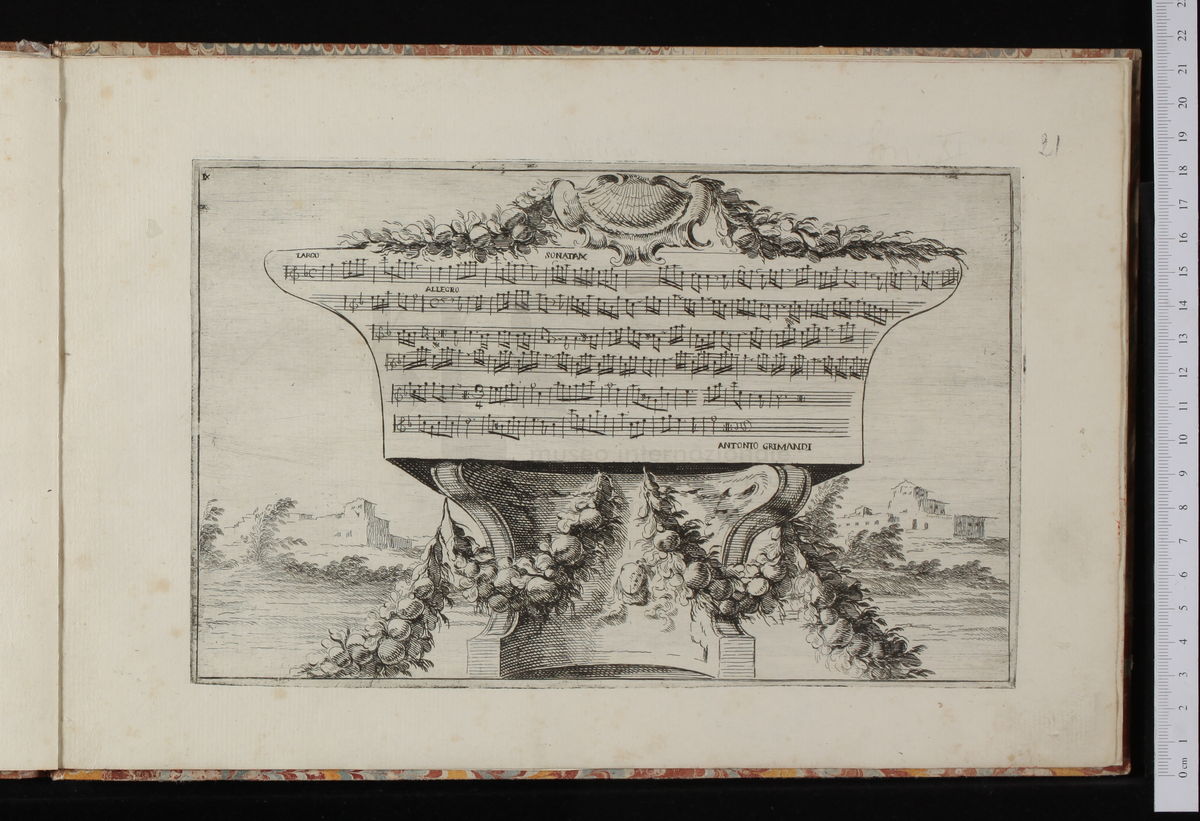 21
IX
LARGO
SONATA IX
ALLEGRO
ANTONIO GRIMANDI
0 cm 1 2 3 4 5 6 7 8 9 10 11 12 13 14 15 16 17 18 19 20 21 22